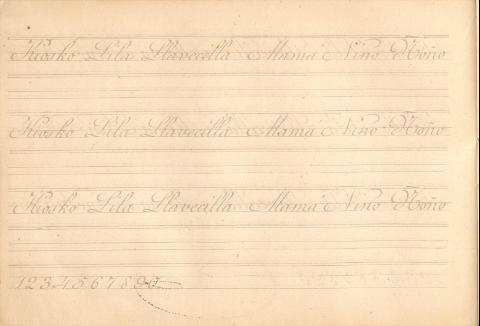 Kiosko Lila Llavecilla Mamá Nino Ñoño
Kiosko Lila Llavecilla Mamá Nino Ñoño
Kiosko Lila Llavecilla Mamá Nino Ñoño
1234567890